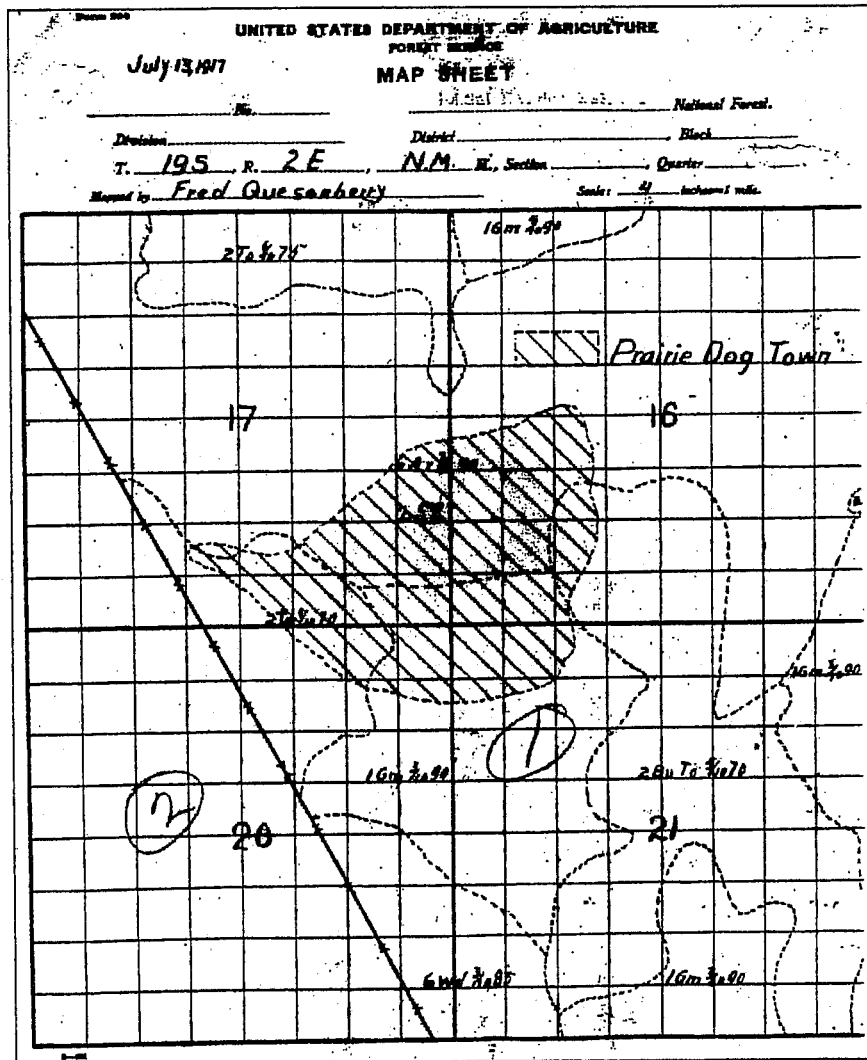 Form 200
UNITED STATES DEPARTMENT OF AGRICULTURE
FOREST SERVICE
July 13, 1917
MAP SHEET
No. National Forest.
Division District , Block
T. 19S , R. 2E , N.M. M., Section , Quarter
Mapped by Fred Quesenbery Scale: 4 inches=1 mile.
1Gm 90
2To 75
Prairie Dog Town
17 16
2To 70
1Gm 3/10 90
1 1Gm 3/10 90 2Bu To 70
2
20 21
6Wd 3/10 85 1Gm 3/10 90